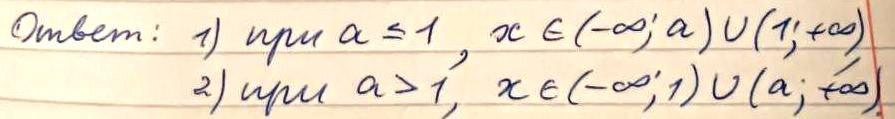 Ответ: 1) при a ≤ 1, x ∈ (-∞; a) ∪ (1; +∞)
2) при a > 1, x ∈ (-∞; 1) ∪ (a; +∞)